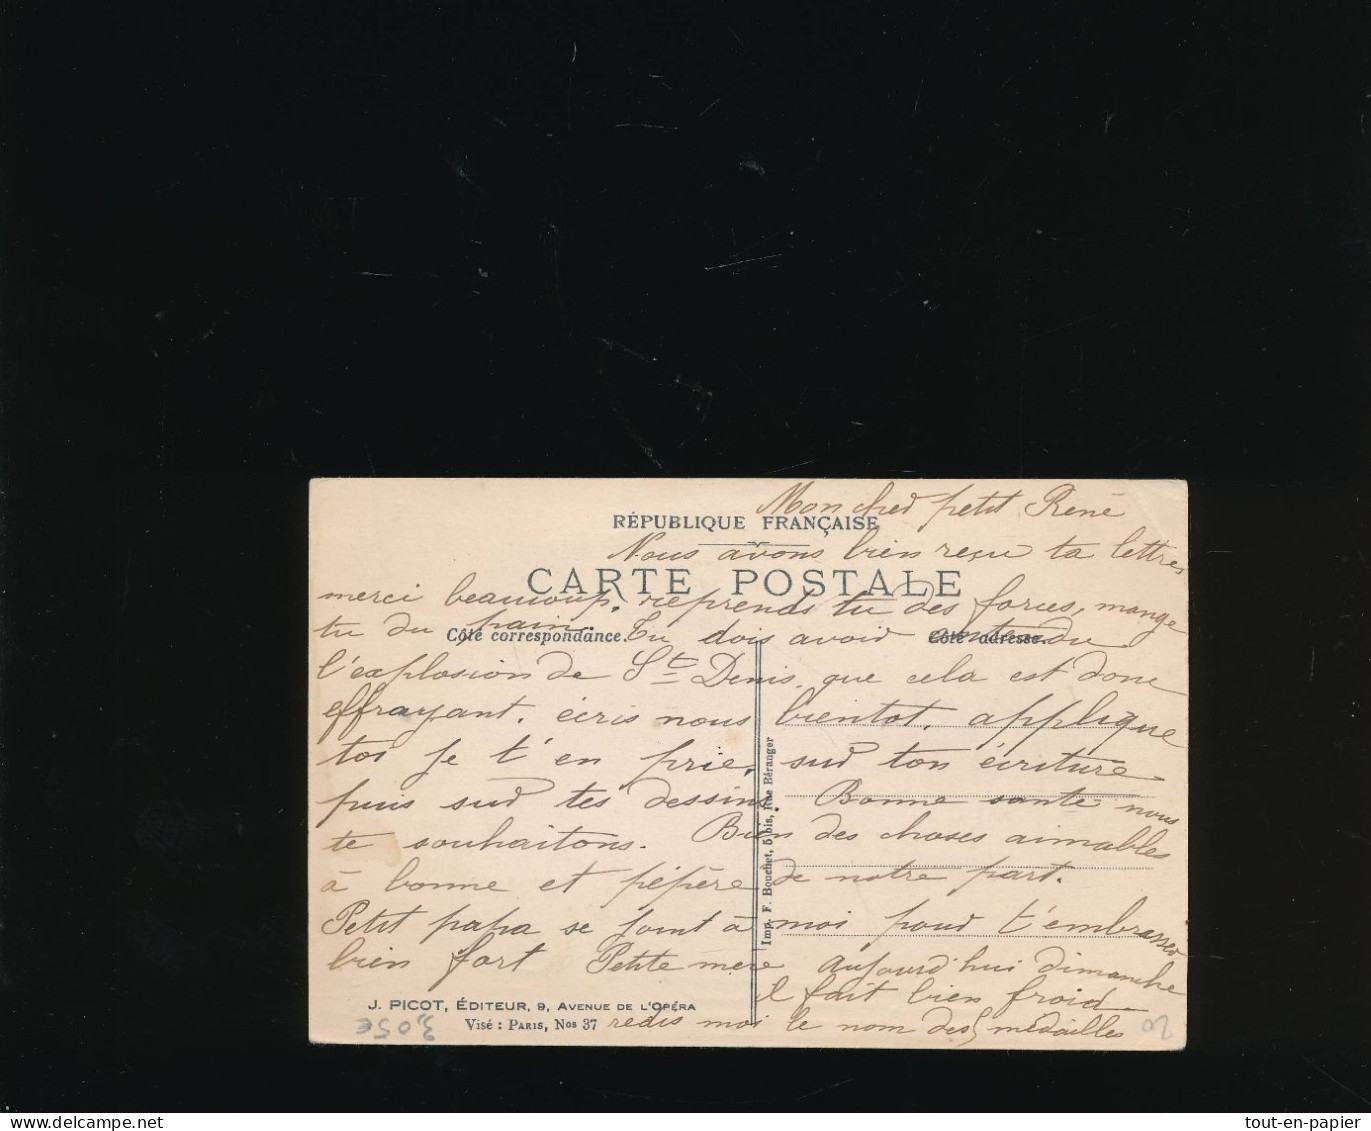 Mon cher petit René
RÉPUBLIQUE FRANÇAISE
Nous avons bien reçu ta lettres
CARTE POSTALE
merci beaucoup. reprends tu des forces, mange
tu du pain. Tu dois avoir entendu
Côté correspondance.
Côté adresse.
l'explosion de St Denis, que cela est donc
effrayant. écris nous bientot. applique
toi je t'en prie, sur ton écriture
puis sur tes dessins. Bonne santé nous
te souhaitons. Bien des choses aimables
à bonne et pépère de notre part.
Petit papa se joint à moi pour t'embrasser
bien fort Petite mere aujourd'hui dimanche
il fait bien froid
redis moi le nom des médailles
J. PICOT, ÉDITEUR, 9, AVENUE DE L'OPÉRA
Visé : PARIS, Nos 37
Imp. F. Bouchet, 5 bis, Rue Béranger
3,05€
20
tout-en-papier.delcampe.net
tout-en-papier